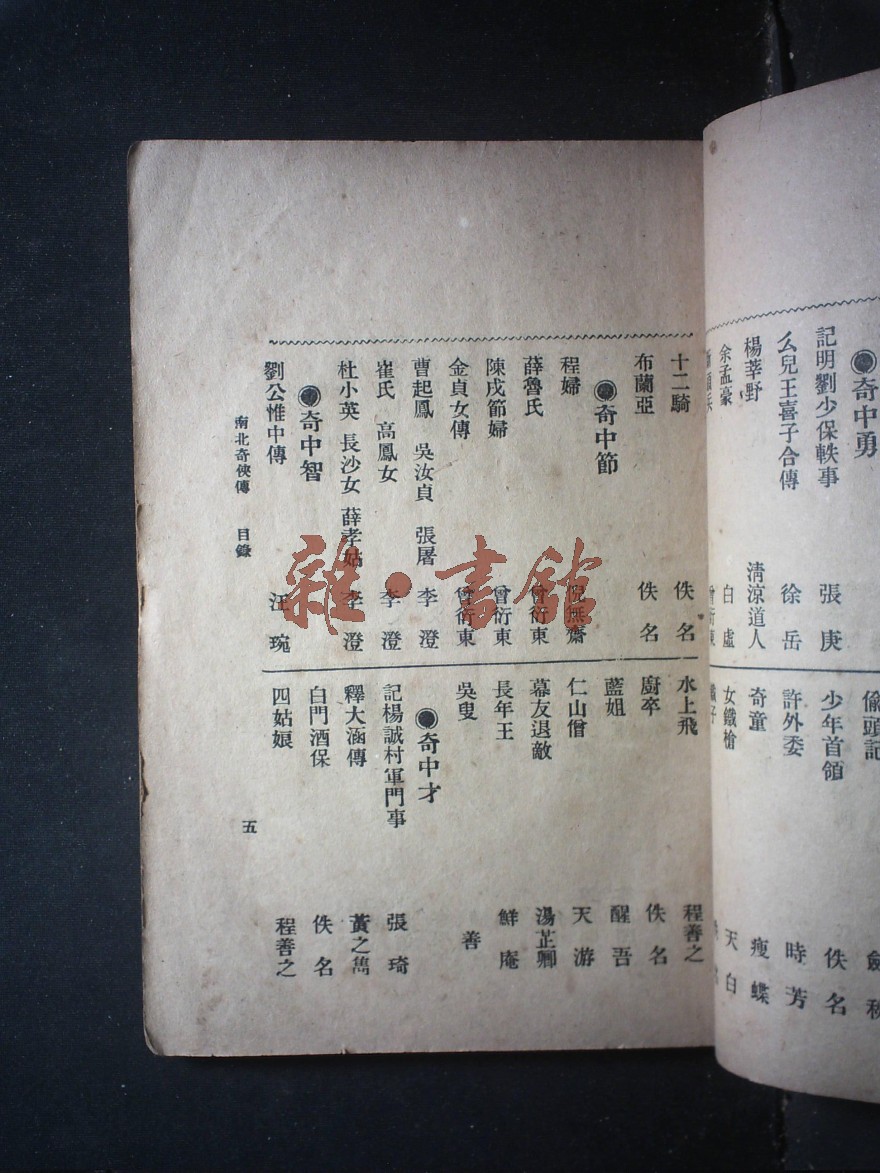 ●奇中勇
記明劉少保軼事 張庚
么兒王喜子合傳 徐岳
楊莘野 清涼道人
余孟豪 白虛
曾衍東
偷頭記
少年首領 佚名
許外委 時芳
奇童 瘦蝶
女鐵槍 天白
十二騎 佚名
布蘭亞 佚名
●奇中節
程婦 倪無齋
薛魯氏 曾衍東
陳戌節婦 曾衍東
金貞女傳 曾衍東
曹起鳳 吳汝貞 張屠 李澄
崔氏 高鳳女 李澄
杜小英 長沙女 薛孝姑 李澄
●奇中智
劉公惟中傳 汪琬
水上飛 程善之
廚卒 佚名
藍姐 醒吾
仁山僧 天游
幕友退敵 湯芷卿
長年王 鮮庵
吳叟 善
●奇中才
記楊誠村軍門事 張琦
釋大涵傳 黃之雋
白門酒保 佚名
四姑娘 程善之
南北奇俠傳 目錄
五
雜·書館